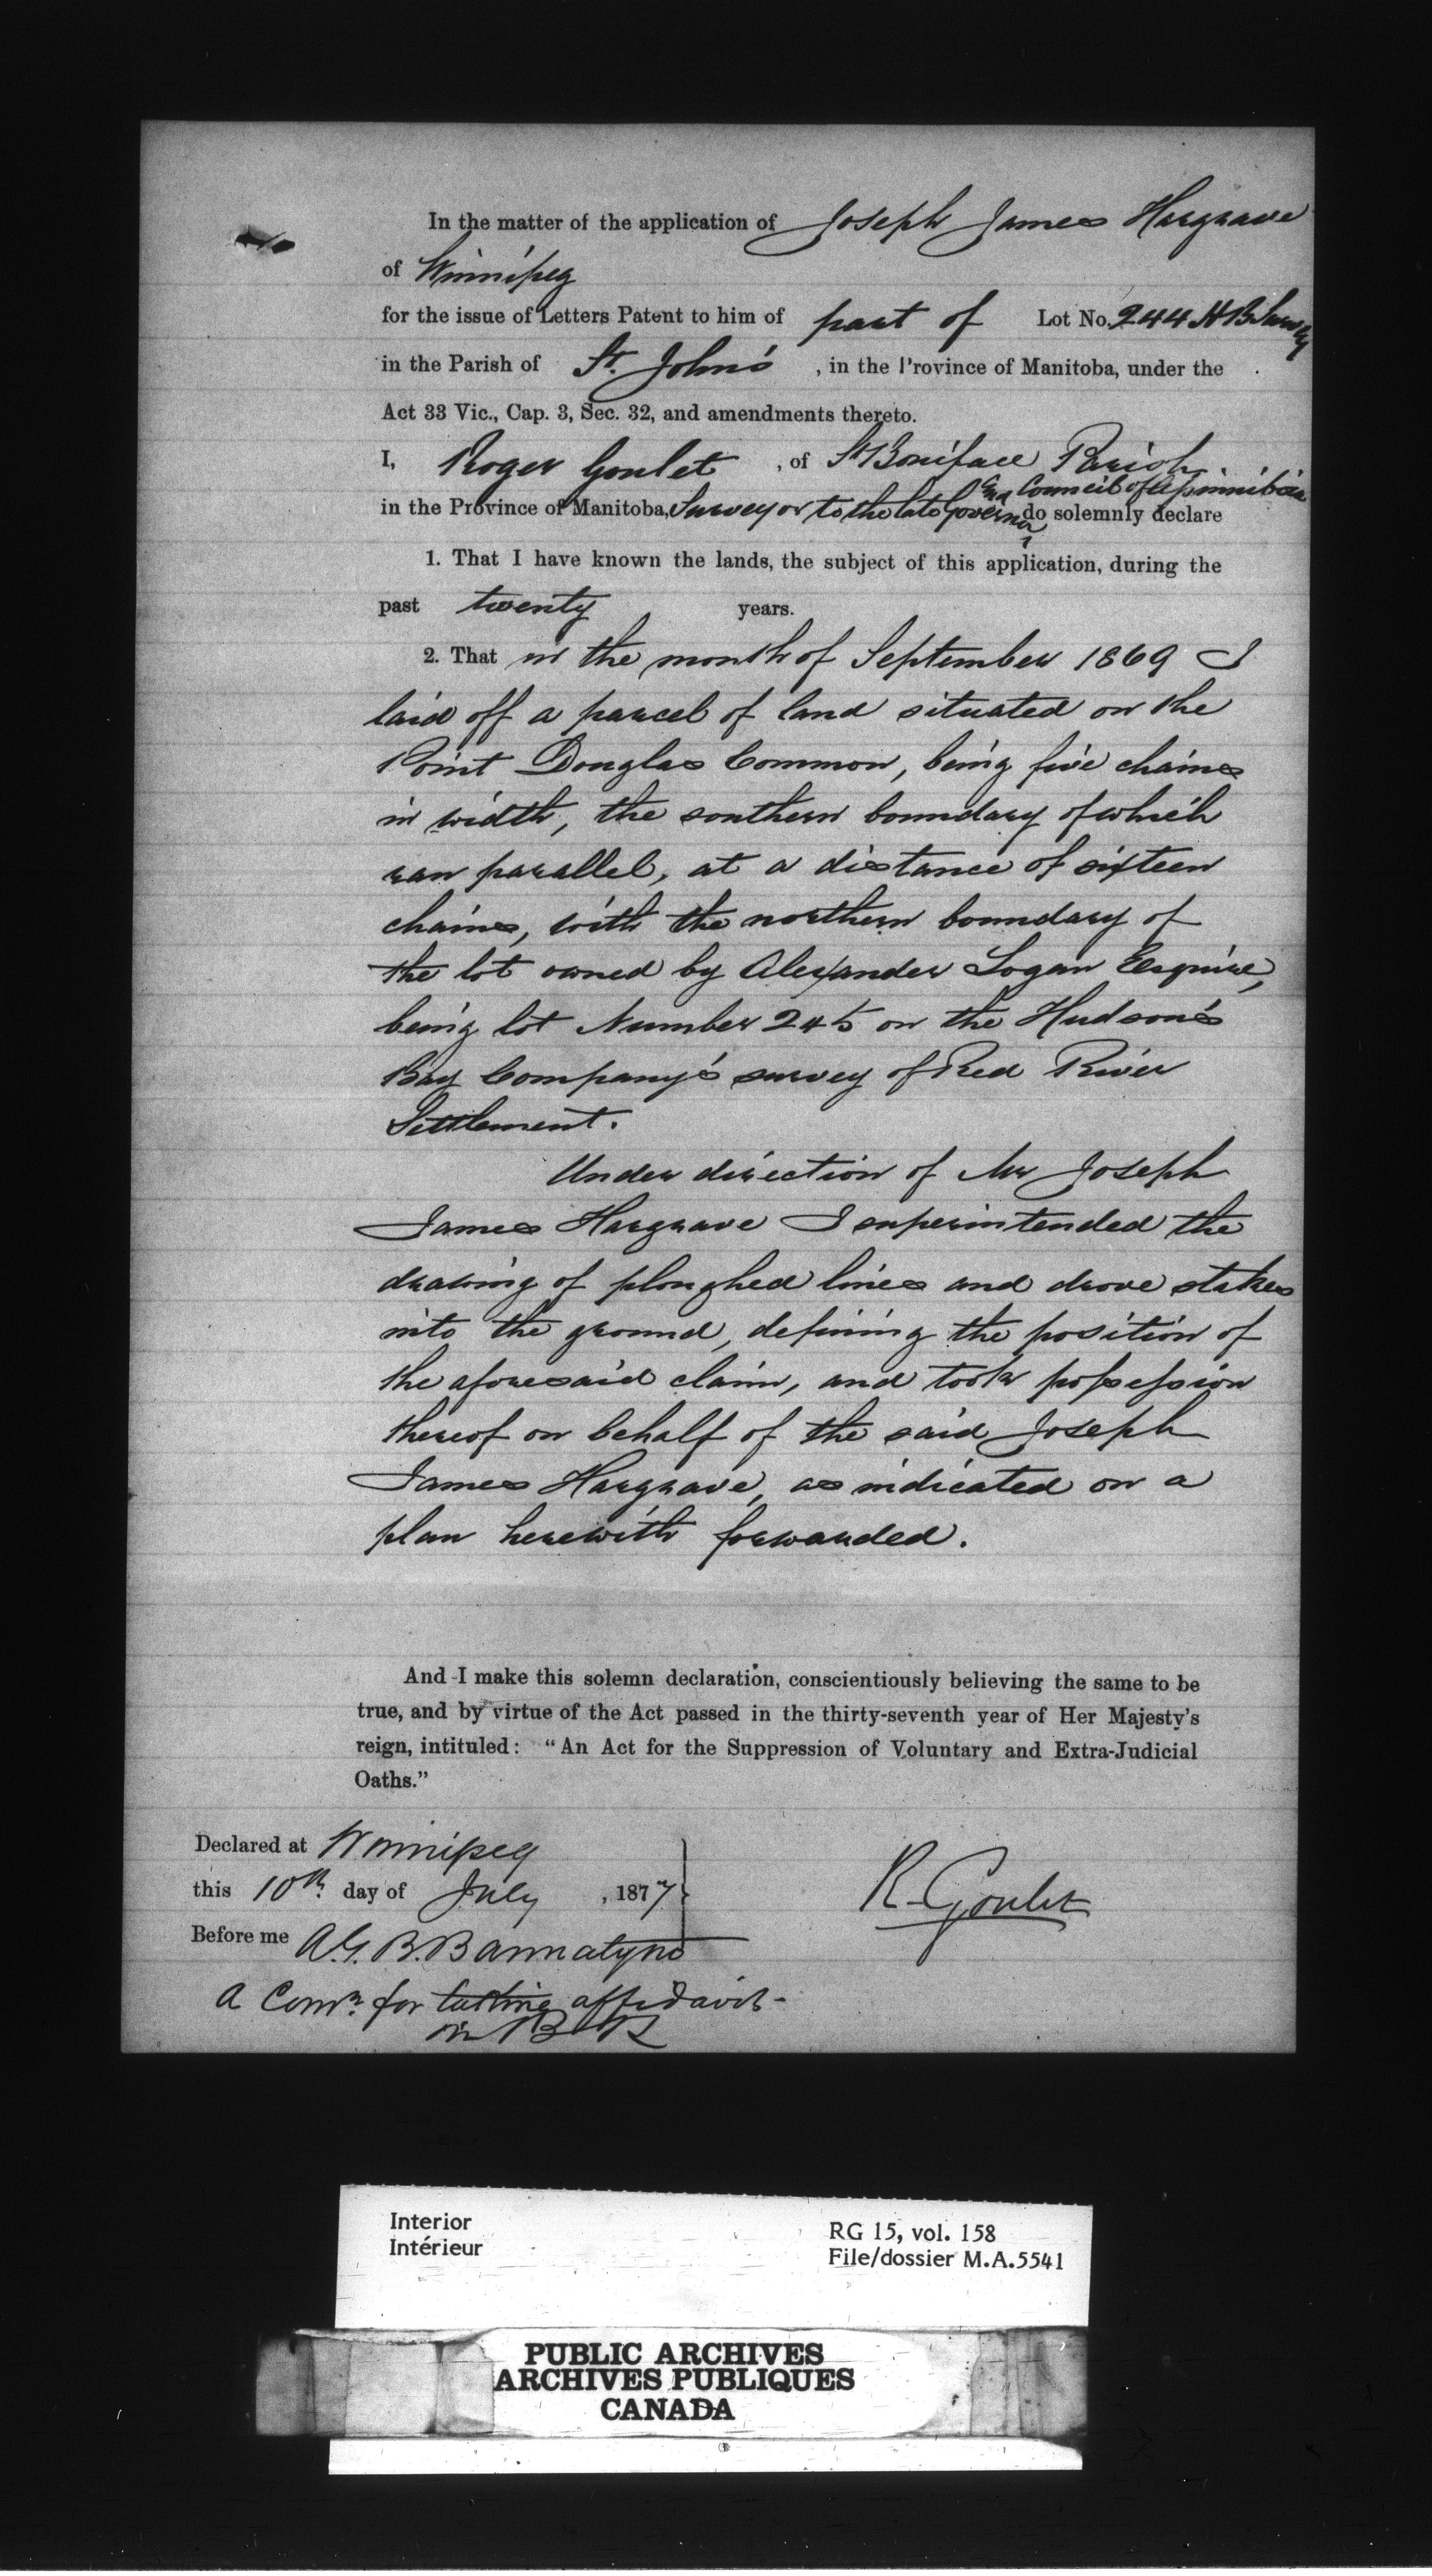 In the matter of the application of Joseph James Hargrave
of Winnipeg
for the issue of Letters Patent to him of part of Lot No. 244 H B Survey
in the Parish of St. John's , in the Province of Manitoba, under the
Act 33 Vic., Cap. 3, Sec. 32, and amendments thereto.
I, Roger Goulet , of St Boniface Parish
and Council of Assiniboia
in the Province of Manitoba, Surveyor to the late Governor do solemnly declare
1. That I have known the lands, the subject of this application, during the
past twenty years.
2. That in the month of September 1869 I
laid off a parcel of land situated on the
Point Douglas Common, being five chains
in width, the southern boundary of which
ran parallel, at a distance of sixteen
chains, with the northern boundary of
the lot owned by Alexander Logan Esquire,
being lot Number 245 on the Hudson's
Bay Company's survey of Red River
Settlement.
Under direction of Mr Joseph
James Hargrave I superintended the
drawing of ploughed lines and drove stakes
into the ground, defining the position of
the aforesaid claim, and took possession
thereof on behalf of the said Joseph
James Hargrave, as indicated on a
plan herewith forwarded.
And I make this solemn declaration, conscientiously believing the same to be
true, and by virtue of the Act passed in the thirty-seventh year of Her Majesty's
reign, intituled: "An Act for the Suppression of Voluntary and Extra-Judicial
Oaths."
Declared at Winnipeg
this 10th day of July , 1877
R. Goulet
Before me A.G.B. Bannatyne
A Comr. for taking affidavits
in B R
Interior
Intérieur
RG 15, vol. 158
File/dossier M.A.5541
PUBLIC ARCHIVES
ARCHIVES PUBLIQUES
CANADA